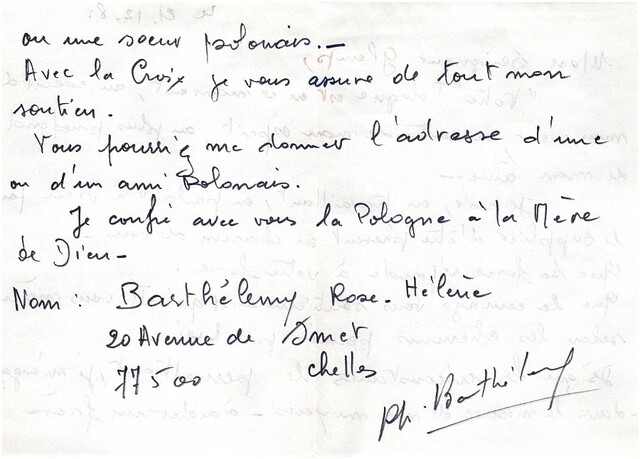 ou une soeur polonais._
Avec la Croix je vous assure de tout mon
soutien.
Vous pourriez me donner l'adresse d'une
ou d'un ami Polonais.
Je confie avec vous la Pologne à la Mère
de Dieu_
Nom : Barthélemy Rose-Hélène
20 Avenue de
Chelles
77500
Ph. Barthélemy